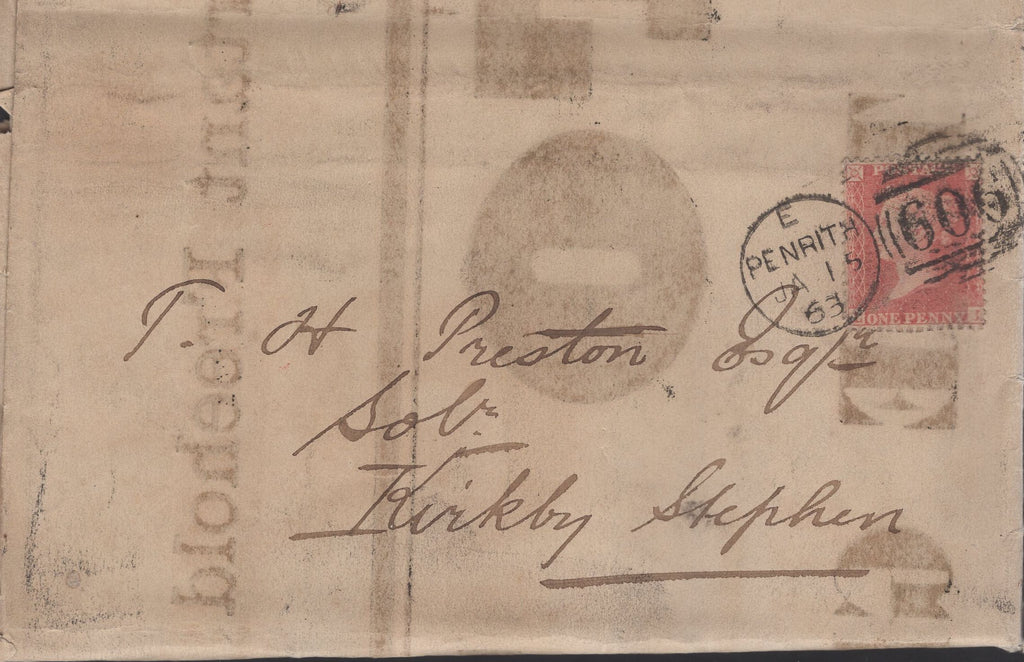 POSTAGE
E
PENRITH
JA 15
63
606
ONE PENNY
T. H Preston Esqr
Solr
Kirkby Stephen
Freehold